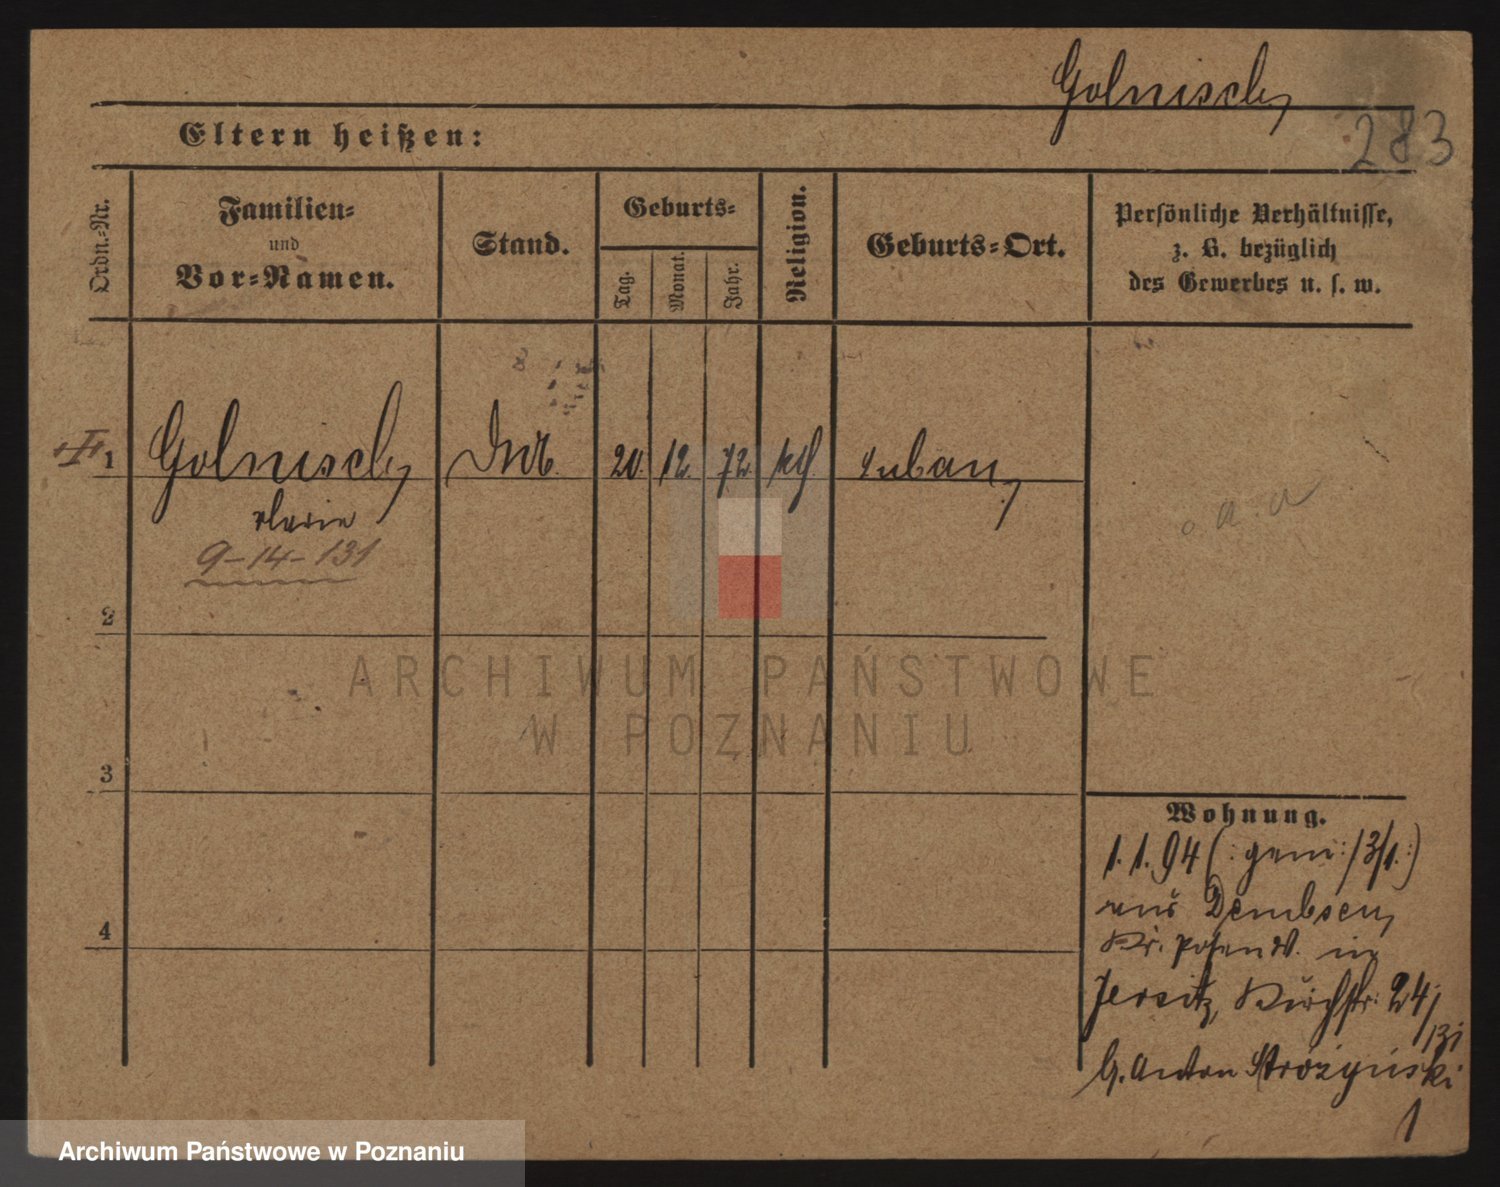 Golnisch,
283
Eltern heißen:
Ordn.-Nr.
Familien-
und
Vor-Namen.
Stand.
Geburts-
Tag.
Monat.
Jahr.
Religion.
Geburts-Ort.
Persönliche Verhältnisse,
z. B. bezüglich
des Gewerbes u. s. w.
1 Golnisch, 20. 12. 72. kth. Luban,
Marie
9-14-131
o. a. a
2
3
4
Wohnung.
1. 1. 94 (: gem: 13/1. :)
aus Dembsen,
Kr. Posen W. in
Jersitz, Kirchstr: 24
b. Anton Strózyński
1
ARCHIWUM PAŃSTWOWE
W POZNANIU
Archiwum Państwowe w Poznaniu